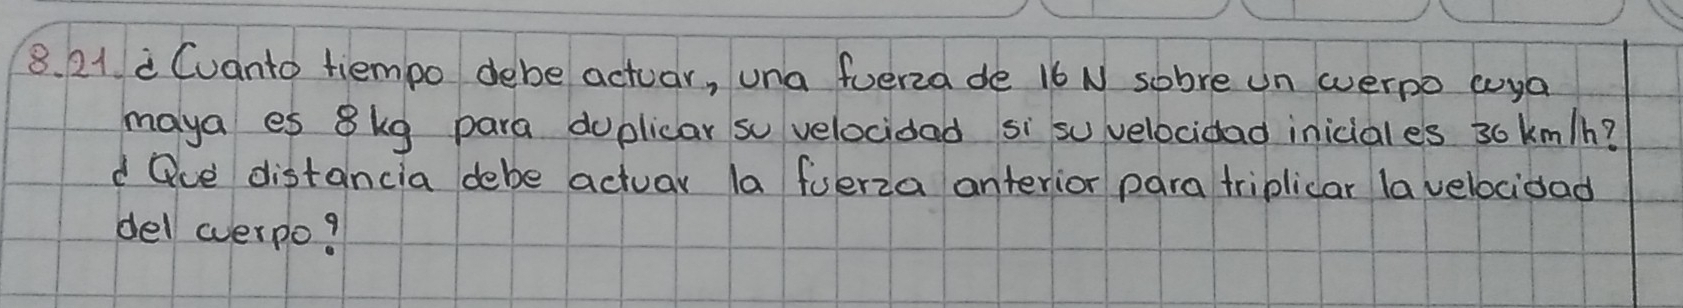 8.21. ¿Cuanto tiempo debe actuar, una fuerza de 16 N sobre un cuerpo cuya
maya es 8 kg para duplicar su velocidad si su velocidad inicial es 36 km/h?
¿Que distancia debe actuar la fuerza anterior para triplicar la velocidad
del cuerpo?